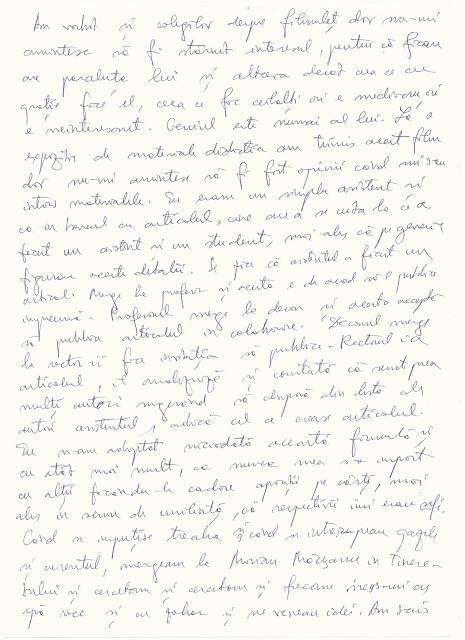 Am vorbit și colegilor despre filmuleț dar nu-mi
amintesc să fi stârnit interesul, pentru că fiecare
are parcelula lui și altceva decât ceea ce
face el, ceea ce fac ceilalți ori e mediocru ori
e neinteresant. Geniul este numai al lui. La o
expoziție de materiale didactice am trimis acest film
dar nu-mi amintesc să fi fost opinii când mi s-au
întors materialele. Eu eram un simplu asistent și
ca în bancul cu articolul, care
făcut un asistent și un student, mai ales că pe generic
figurau aceste detalii. Se știa că asistentul a făcut un
articol. Merge la profesor și acesta e de acord să-l publice
împreună. Profesorul merge la decan și acesta acceptă
să publice articolul în colaborare. Decanul merge
la rector să-i facă invitația să publice. Rectorul ia
articolul, îl analizează și constată că sunt prea
mulți autori sugerând să dispară din lista de
autori asistentul, adică cel ce a creat articolul.
Eu n-am adoptat niciodată această formulă și
cu atât mai mult, ca munca mea s-o împart
cu alții făcându-le cadou apariții pe cărți, mai
ales în semn de umilință, că respectivii îmi erau șefi.
Când se împuțise treaba și când se întrerupeau gazele
și curentul, mergeam la Marian Mocanu în Tinere-
tului și cercetam și cercetam și făceam
apă rece și cu zahăr și ne veneau idei. Am scris